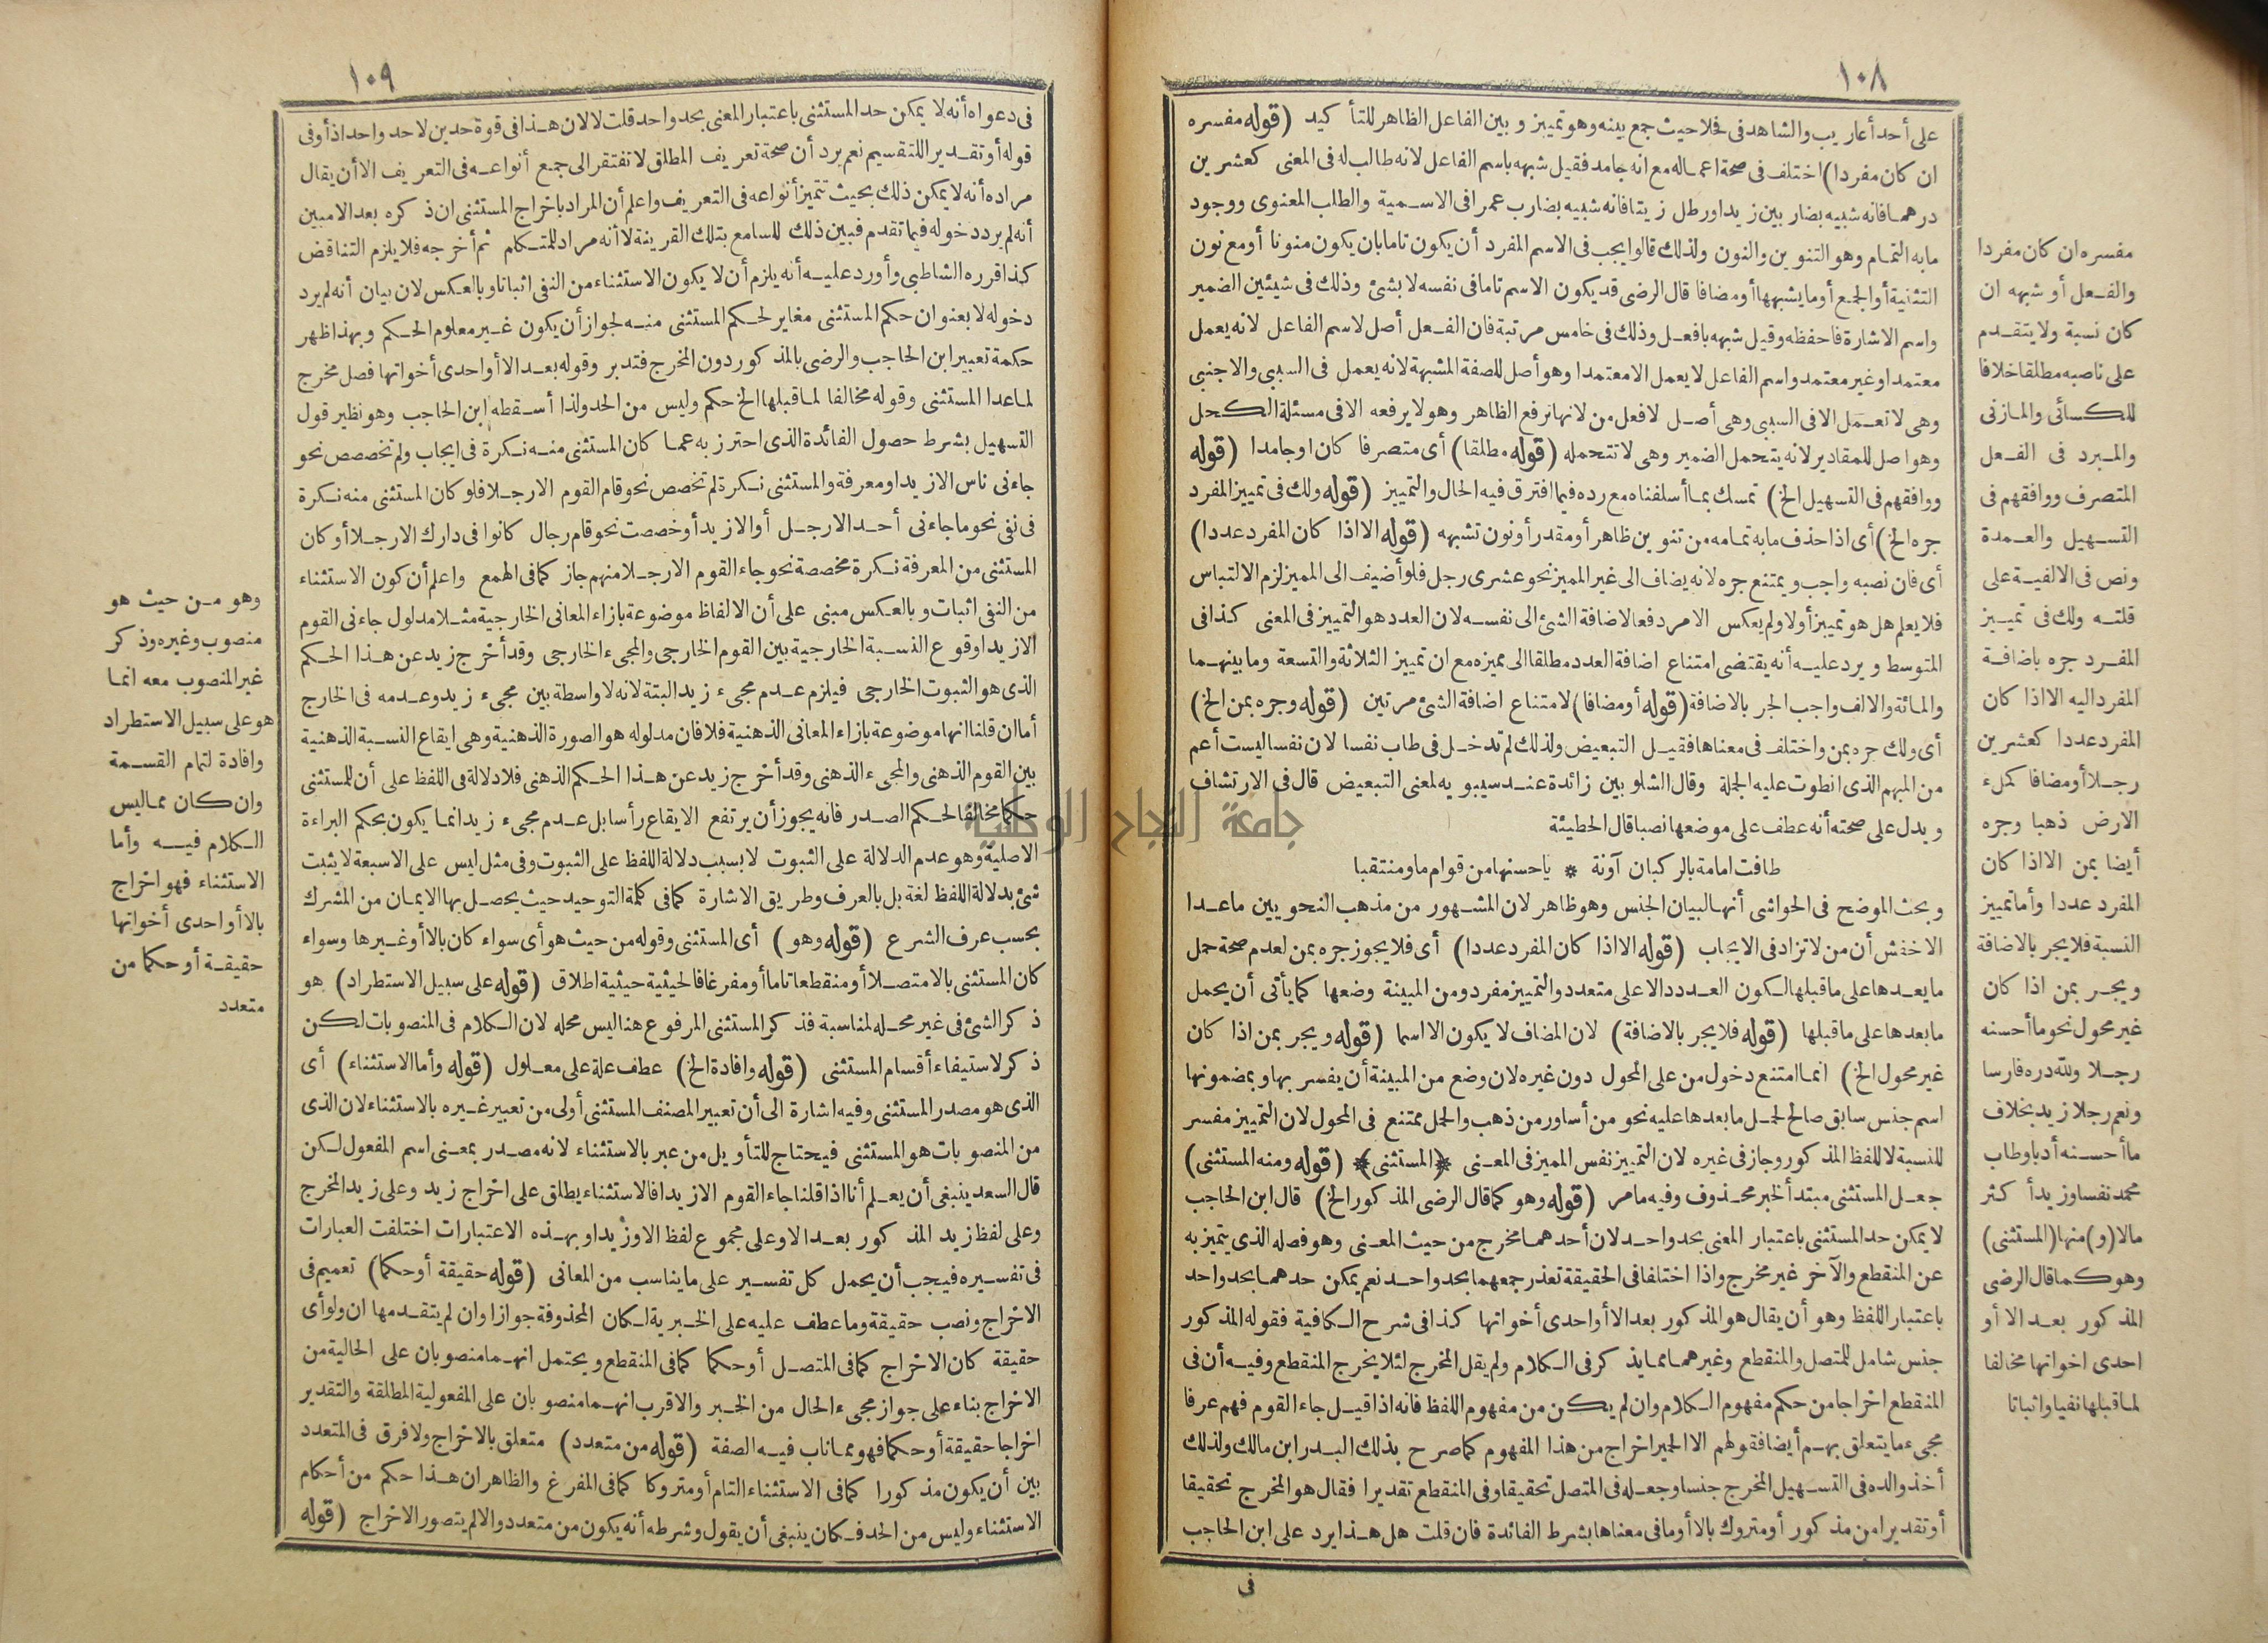 ١٠٨
على أحد أعاريب والشاهد فى فحلا حيث جمع بينه وهو تمييز وبين الفاعل الظاهر للتأكيد (قوله مفسره
ان كان مفردا) اختلف فى صحة اعماله مع انه جامد فقيل شبهه باسم الفاعل لانه طالب له فى المعنى كعشرين
درهما فانه شبيه بضاربين زيدا ورطل زيتا فانه شبيه بضارب عمرا فى الاسمية والطلب المعنوى ووجود
مابه التمام وهو التنوين والنون ولذلك قالوا يجب فى الاسم المفرد أن يكون تاما بان يكون منونا أو مع نون
التثنية أو الجمع أو ما يشبهها أو مضافا قال الرضى قد يكون الاسم تاما فى نفسه لا بشئ وذلك فى شيئين الضمير
واسم الاشارة فاحفظه وقيل شبهه بافعل وذلك فى خامس مرتبة فان الفعل أصل لاسم الفاعل لانه يعمل
معتمدا وغير معتمد واسم الفاعل لا يعمل الا معتمدا وهو أصل للصفة المشبهة لانه يعمل فى السببى والاجنبى
وهى لا تعمل الا فى السببى وهى أصل لافعل من لانها ترفع الظاهر وهو لا يرفعه الا فى مسئلة الكحل
وهو اصل للمقادير لانه يتحمل الضمير وهى لا تتحمله (قوله مطلقا) أى متصرفا كان او جامدا (قوله
ووافقهم فى التسهيل الخ) تمسك بما أسلفناه مع رده فيما افترق فيه الحال والتمييز (قوله ولك فى تمييز المفرد
جره الخ) أى اذا حذف مابه تمامه من تنوين ظاهر أو مقدر أو نون تشبهه (قوله الا اذا كان المفرد عددا)
أى فان نصبه واجب ويمتنع جره لانه يضاف الى غير المميز نحو عشرى رجل فلو أضيف الى المميز لزم الالتباس
فلا يعلم هل هو تمييز أولا ولم يعكس الامر دفعا لاضافة الشئ الى نفسه لان العدد هو التمييز فى المعنى كذا فى
المتوسط ويرد عليه أنه يقتضى امتناع اضافة العدد مطلقا الى مميزه مع ان تمييز الثلاثة والتسعة وما بينهما
والمائة والالف واجب الجر بالاضافة (قوله أو مضافا) لامتناع اضافة الشئ مرتين (قوله وجره بمن الخ)
أى ولك جره بمن واختلف فى معناها فقيل التبعيض ولذلك لم تدخل فى طاب نفسا لان نفسا ليست أعم
من المبهم الذى انطوت عليه الجملة وقال الشلوبين زائدة عند سيبويه لمعنى التبعيض قال فى الارتشاف
ويدل على صحته أنه عطف على موضعها نصبا قال الحطيئة
طافت امامة بالركبان آونة * يا حسنها من قوام ما ومنتقبا
وبحث الموضح فى الحواشى أنها لبيان الجنس وهو ظاهر لان المشهور من مذهب النحويين ماعدا
الاخفش أن من لا تزاد فى الايجاب (قوله الا اذا كان المفرد عددا) أى فلا يجوز جره بمن لعدم صحة حمل
ما بعدها على ما قبلها لكون العدد دالا على متعدد والتمييز مفرد ومن المبينة وضعها كما يأتى أن يحمل
ما بعدها على ما قبلها (قوله فلا يجر بالاضافة) لان المضاف لا يكون الا اسما (قوله ويجر بمن اذا كان
غير محول الخ) انما امتنع دخول من على المحول دون غيره لان وضع من المبينة أن يفسر بها وبمضمونها
اسم جنس سابق صالح لحمل ما بعدها عليه نحو من أساور من ذهب والحمل ممتنع فى المحول لان التمييز مفسر
للنسبة لا للفظ المذكور وجاز فى غيره لان التمييز نفس المميز فى المعنى ﴿المستثنى﴾ (قوله ومنه المستثنى)
جعل المستثنى مبتدأ لخبر محذوف وفيه ما مر (قوله وهو كما قال الرضى المذكور الخ) قال ابن الحاجب
لا يمكن حد المستثنى باعتبار المعنى بحد واحد لان أحدهما مخرج من حيث المعنى وهو فصله الذى يتميز به
عن المنقطع والآخر غير مخرج واذا اختلفا فى الحقيقة تعذر جمعهما بحد واحد نعم يمكن حدهما بحد واحد
باعتبار اللفظ وهو أن يقال هو المذكور بعد الا أو احدى أخواتها كذا فى شرح الكافية فقوله المذكور
جنس شامل للمتصل والمنقطع وغيرهما مما يذكر فى الكلام ولم يقل المخرج لئلا يخرج المنقطع وفيه أن فى
المنقطع اخراجا من حكم مفهوم الكلام وان لم يكن من مفهوم اللفظ فانه اذا قيل جاء القوم فهم عرفا
مجىء ما يتعلق بهم أيضا فقولهم الا الحمير اخراج من هذا المفهوم كما صرح بذلك البدر ابن مالك ولذلك
أخذ والده فى التسهيل المخرج جنسا وجعله فى المتصل تحقيقا وفى المنقطع تقديرا فقال هو المخرج تحقيقا
أو تقديرا من مذكور أو متروك بالا أو ما فى معناها بشرط الفائدة فان قلت هل هذا يرد على ابن الحاجب
فى
مفسره ان كان مفردا
والفعل أو شبهه ان
كان نسبة ولا يتقدم
على ناصبه مطلقا خلافا
للكسائى والمازنى
والمبرد فى الفعل
المتصرف ووافقهم فى
التسهيل والعمدة
ونص فى الالفية على
قلته ولك فى تمييز
المفرد جره باضافة
المفرد اليه الا اذا كان
المفرد عددا كعشرين
رجلا أو مضافا كملء
الارض ذهبا وجره
أيضا بمن الا اذا كان
المفرد عددا وأما تمييز
النسبة فلا يجر بالاضافة
ويجر بمن اذا كان
غير محول نحو ما أحسنه
رجلا ولله دره فارسا
ونعم رجلا زيد بخلاف
ما أحسنه أدبا وطاب
محمد نفسا وزيد أكثر
مالا (و) منها (المستثنى)
وهو كما قال الرضى
المذكور بعد الا أو
احدى اخواتها مخالفا
لما قبلها نفيا واثباتا
١٠٩
فى دعواه أنه لا يمكن حد المستثنى باعتبار المعنى بحد واحد قلت لا لان هذا فى قوة حدين لا حد واحد اذ أو فى
قوله أو تقديرا للتقسيم نعم يرد أن صحة تعريف المطلق لا تفتقر الى جمع أنواعه فى التعريف الا أن يقال
مراده أنه لا يمكن ذلك بحيث تتميز أنواعه فى التعريف واعلم أن المراد باخراج المستثنى ان ذكره بعد الا مبين
أنه لم يرد دخوله فيما تقدم فبين ذلك للسامع بتلك القرينة لا أنه مراد للمتكلم ثم أخرجه فلا يلزم التناقض
كذا قرره الشاطبى وأورد عليه أنه يلزم أن لا يكون الاستثناء من النفى اثباتا وبالعكس لان بيان أنه لم يرد
دخوله لا بعنوان حكم المستثنى مغاير لحكم المستثنى منه لجواز أن يكون غير معلوم الحكم وبهذا ظهر
حكمة تعبير ابن الحاجب والرضى بالمذكور دون المخرج فتدبر وقوله بعد الا أو احدى أخواتها فصل مخرج
لما عدا المستثنى وقوله مخالفا لما قبلها الخ حكم وليس من الحد ولذا أسقطه ابن الحاجب وهو نظير قول
التسهيل بشرط حصول الفائدة الذى احترز به عما كان المستثنى منه نكرة فى ايجاب ولم تخصص نحو
جاءنى ناس الا زيدا ومعرفة والمستثنى نكرة لم تخصص نحو قام القوم الا رجلا فلو كان المستثنى منه نكرة
فى نفى نحو ما جاءنى أحد الا رجل أو الا زيد أو خصصت نحو قام رجال كانوا فى دارك الا رجلا أو كان
المستثنى من المعرفة نكرة مخصصة نحو جاء القوم الا رجلا منهم جاز كما فى الهمع واعلم أن كون الاستثناء
من النفى اثبات وبالعكس مبنى على أن الالفاظ موضوعة بازاء المعانى الخارجية مثلا مدلول جاءنى القوم
الا زيدا وقوع النسبة الخارجية بين القوم الخارجى والمجىء الخارجى وقد أخرج زيد عن هذا الحكم
الذى هو الثبوت الخارجى فيلزم عدم مجىء زيد البتة لانه لا واسطة بين مجىء زيد وعدمه فى الخارج
أما ان قلنا انها موضوعة بازاء المعانى الذهنية فلا فان مدلوله هو الصورة الذهنية وهى ايقاع النسبة الذهنية
بين القوم الذهنى والمجىء الذهنى وقد أخرج زيد عن هذا الحكم الذهنى فلا دلالة فى اللفظ على أن للمستثنى
حكما مخالفا لحكم الصدر فانه يجوز أن يرتفع الايقاع رأسا بل عدم مجىء زيد انما يكون بحكم البراءة
الاصلية وهو عدم الدلالة على الثبوت لا بسبب دلالة اللفظ على الثبوت وفى مثل ليس على الا سبعة لا يثبت
شئ بدلالة اللفظ لغة بل بالعرف وطريق الاشارة كما فى كلمة التوحيد حيث يحصل بها الايمان من المشرك
بحسب عرف الشرع (قوله وهو) أى المستثنى وقوله من حيث هو أى سواء كان بالا أو غيرها وسواء
كان المستثنى بالا متصلا أو منقطعا تاما أو مفرغا فالحيثية حيثية اطلاق (قوله على سبيل الاستطراد) هو
ذكر الشئ فى غير محله لمناسبة فذكر المستثنى المرفوع هنا ليس محله لان الكلام فى المنصوبات لكن
ذكر لاستيفاء أقسام المستثنى (قوله وافادة الخ) عطف علة على معلول (قوله وأما الاستثناء) أى
الذى هو مصدر المستثنى وفيه اشارة الى أن تعبير المصنف المستثنى أولى من تعبير غيره بالاستثناء لان الذى
من المنصوبات هو المستثنى فيحتاج للتأويل من عبر بالاستثناء لانه مصدر بمعنى اسم المفعول لكن
قال السعد ينبغى أن يعلم أنا اذا قلنا جاء القوم الا زيدا فالاستثناء يطلق على اخراج زيد وعلى زيد المخرج
وعلى لفظ زيد المذكور بعد الا وعلى مجموع لفظ الا وزيدا وبهذه الاعتبارات اختلفت العبارات
فى تفسيره فيجب أن يحمل كل تفسير على ما يناسب من المعانى (قوله حقيقة أو حكما) تعميم فى
الاخراج ونصب حقيقة وما عطف عليه على الخبرية لكان المحذوفة جوازا وان لم يتقدمها ان ولو أى
حقيقة كان الاخراج كما فى المتصل أو حكما كما فى المنقطع ويحتمل انهما منصوبان على الحالية من
الاخراج بناء على جواز مجىء الحال من الخبر والاقرب انهما منصوبان على المفعولية المطلقة والتقدير
اخراجا حقيقة أو حكما فهو مما ناب فيه الصفة (قوله من متعدد) متعلق بالاخراج ولا فرق فى المتعدد
بين أن يكون مذكورا كما فى الاستثناء التام أو متروكا كما فى المفرغ والظاهر ان هذا حكم من أحكام
الاستثناء وليس من الحد فكان ينبغى أن يقول وشرطه أنه يكون من متعدد والا لم يتصور الاخراج (قوله
وهو من حيث هو
منصوب وغيره وذكر
غير المنصوب معه انما
هو على سبيل الاستطراد
وافادة لتمام القسمة
وان كان مما ليس
الكلام فيه وأما
الاستثناء فهو اخراج
بالا أو احدى أخواتها
حقيقة أو حكما من
متعدد
جامعة النجاح الوطنية